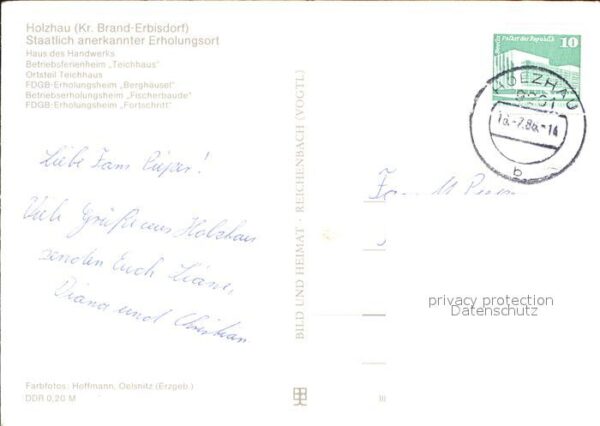 Holzhau (Kr. Brand-Erbisdorf)
Staatlich anerkannter Erholungsort
Haus des Handwerks
Betriebsferienheim „Teichhaus"
Ortsteil Teichhaus
FDGB-Erholungsheim „Berghäusel"
Betriebserholungsheim „Fischerbaude"
FDGB-Erholungsheim „Fortschritt"
Liebe Fam.
Viele Grüße aus Holzhau
senden Euch Liane,
Diana und Christian
Farbfotos: Hoffmann, Oelsnitz (Erzgeb.)
DDR 0,20 M
BILD UND HEIMAT · REICHENBACH (VOGTL.)
Berlin Palast der Republik
10
HOLZHAU
9201
-7.86.-14
b
Fam.
III
privacy protection
Datenschutz